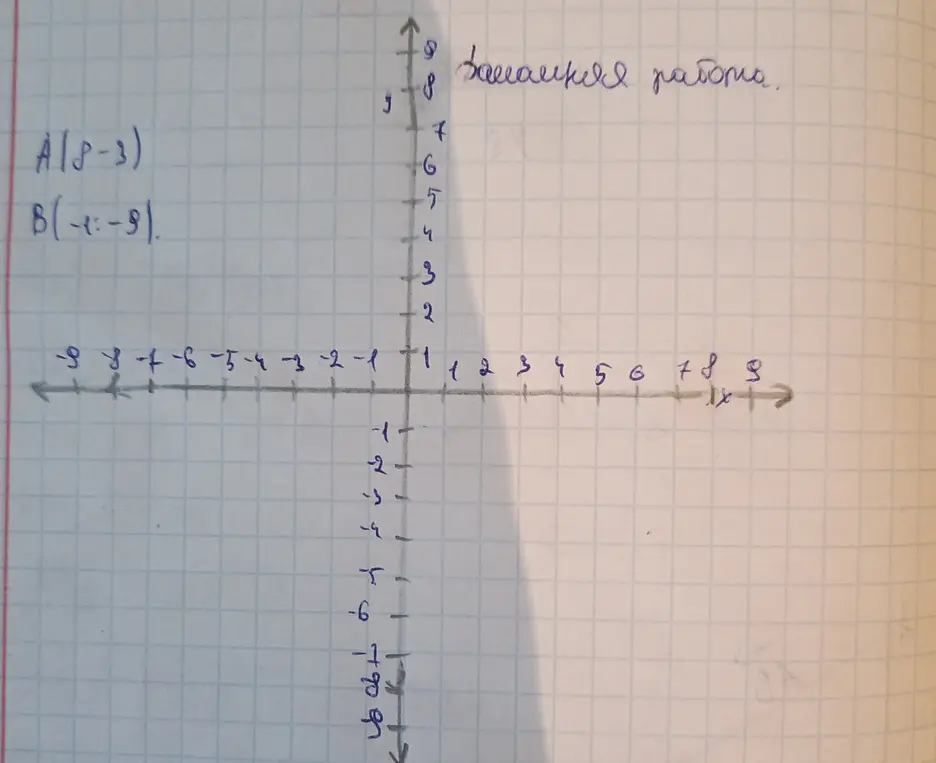 Домашняя работа.
9
8
у
7
A(8-3)
6
5
B(-1:-9).
4
3
2
-9 -8 -7 -6 -5 -4 -3 -2 -1 1 1 2 3 4 5 6 7 8 9
x
-1
-2
-3
-4
-5
-6
-7
-8
-9